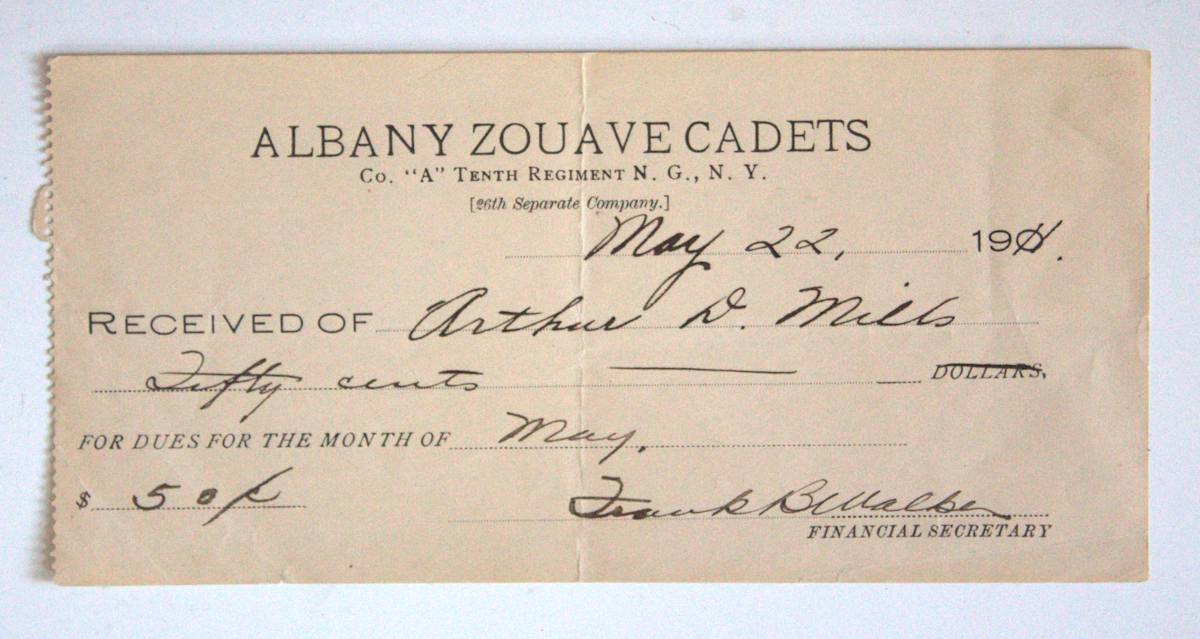 ALBANY ZOUAVE CADETS
Co. "A" Tenth Regiment N. G., N. Y.
[26th Separate Company.]
May 22, 1911.
RECEIVED OF Arthur D. Mills
Fifty cents DOLLARS.
FOR DUES FOR THE MONTH OF May.
$ 50¢ Frank B Walker
FINANCIAL SECRETARY